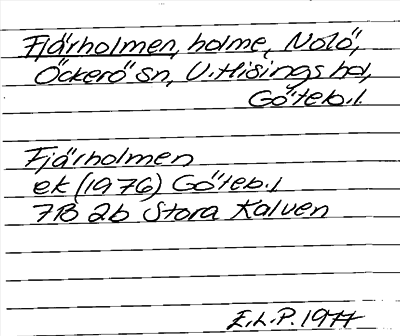 Fjärholmen, holme, Nolö,
Öckerö sn, V.Hisings hd,
Göteb.l.
Fjärholmen
ek (1976) Göteb.l
7B 2b Stora Kalven
E.L.P. 1977